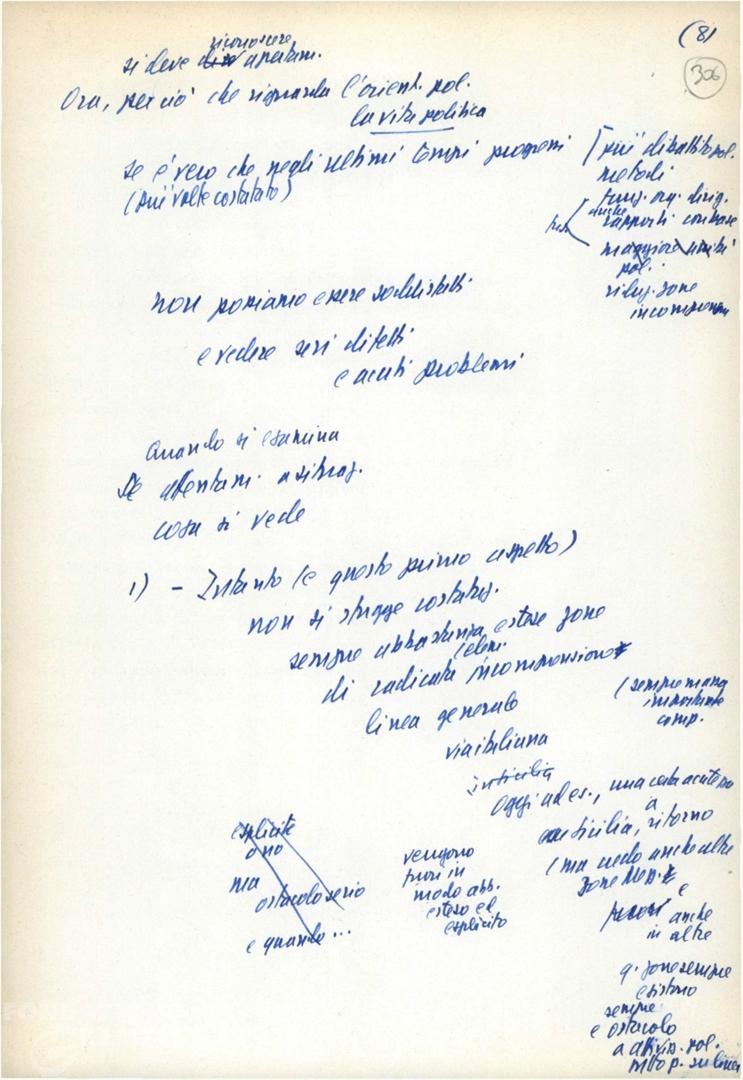 (8)
306
riconoscere
si deve apertam.
Ora, per ciò che riguarda l'orient. pol.
la vita politica
se è vero che negli ultimi tempi progressi
(più volte costatato)
più dibattito pol.
metodi
funz. org. dirig.
anche
rapporti con base
maggiore unità
pol.
riduz. zone
incomprens
non possiamo essere soddisfatti
e vedere seri difetti
e acuti problemi
Quando si esamina
attentam. a situaz.
cosa si vede
1) - Intanto (e questo primo aspetto)
non si sfugge costataz.
sempre abbastanza estese zone
di radicata incomprensione
linea generale
via italiana
(sempre massa
importante
comp.
in Sicilia
Oggi ad es., una certa acutezza
a
Sicilia, ritorno
(ma vedo anche altre
zone Mez.
e
anche
in altre
esplicite
o no
ma
ostacolo serio
e quando ...
vengono
fuori in
modo abb.
esteso ed
esplicito
q. zone sempre
esistono
sempre
e ostacolo
a attivis. pol.
su linea